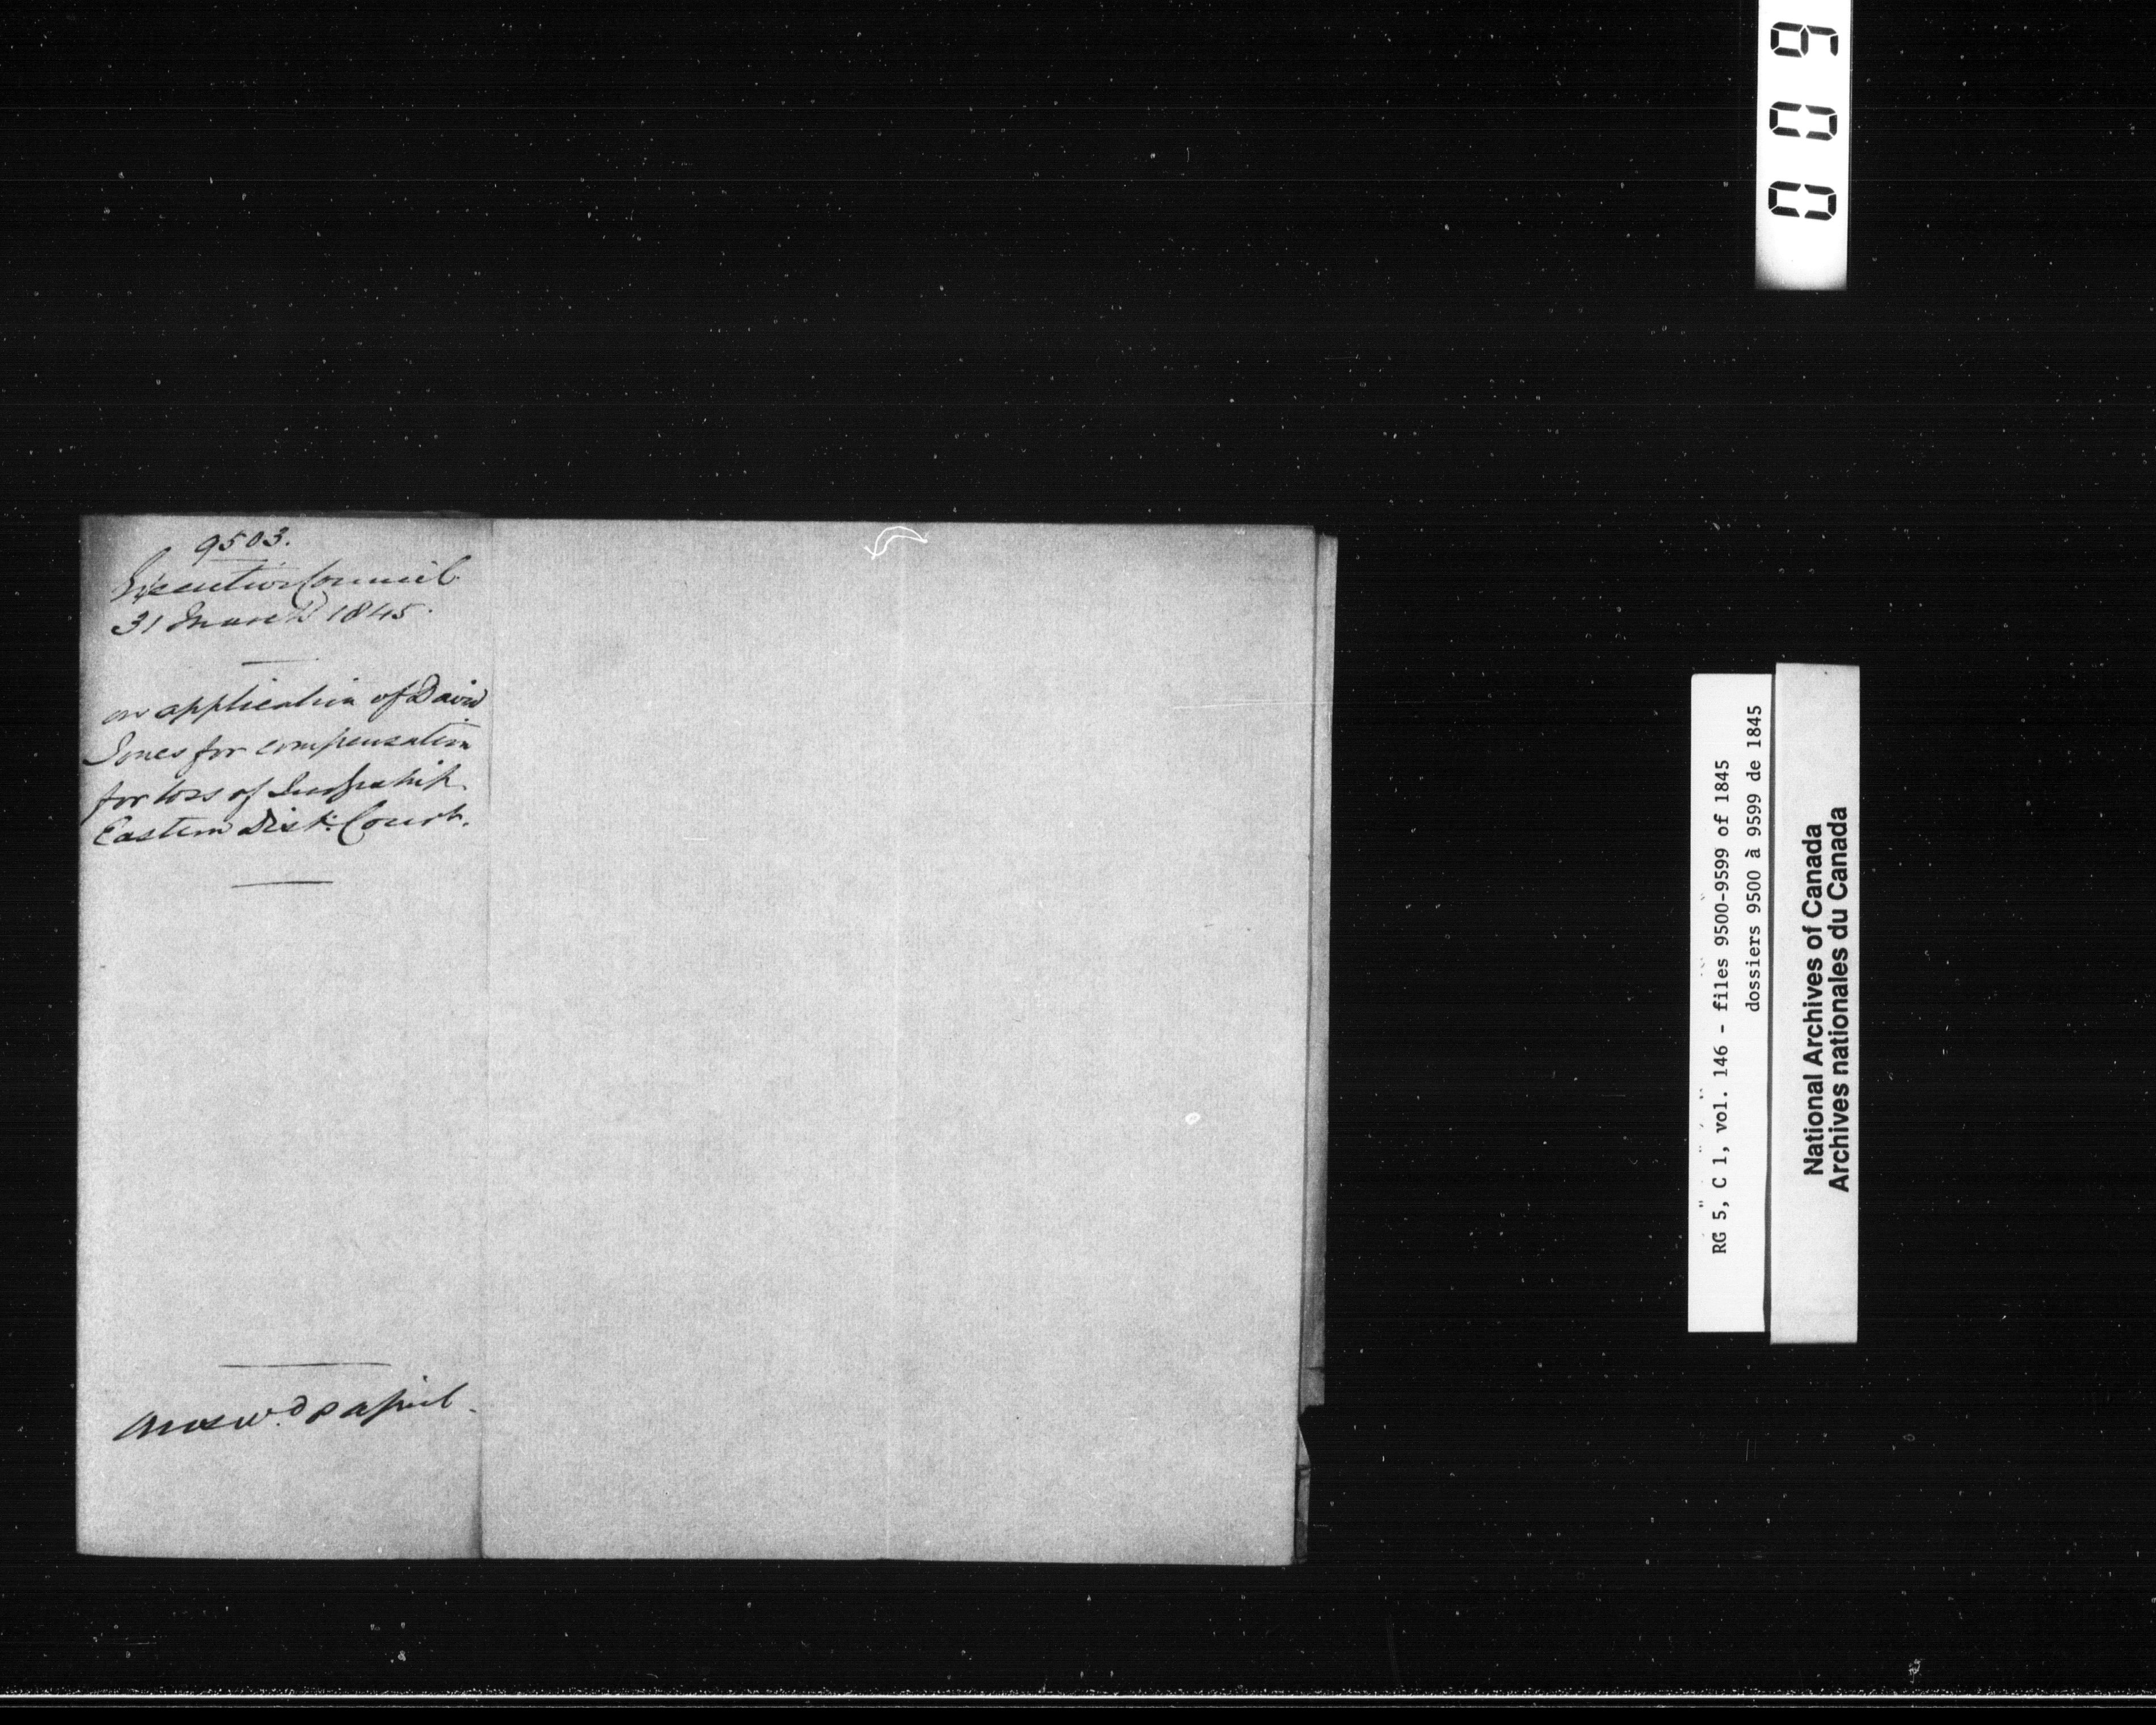 9503.
Executive Council
31 March 1845.
on application of David
Jones for compensation
for loss of Judgeship
Eastern Dist: Court.
Answ.d 8 April.
009
RG 5, C 1, vol. 146 - files 9500-9599 of 1845
dossiers 9500 à 9599 de 1845
National Archives of Canada
Archives nationales du Canada